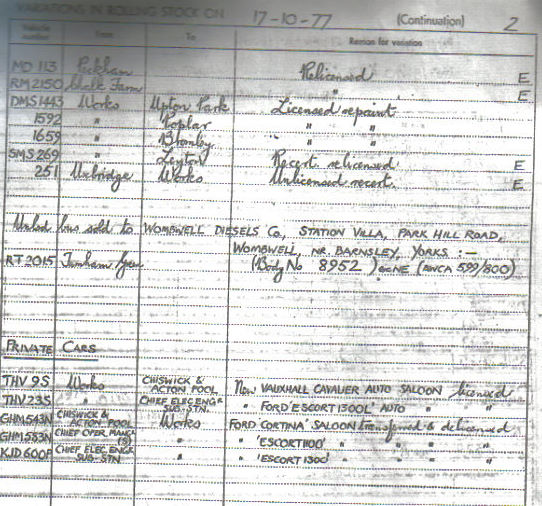 VARIATIONS IN ROLLING STOCK ON 17-10-77 (Continuation) 2
Vehicle number From To Reason for variation
MD 113 Peckham Relicensed E
RM 2150 Chalk Farm " E
DMS 1443 Works Upton Park Licensed repaint
1592 " Poplar " "
1659 " Bromley " "
SMS 269 " Leyton Recert relicensed E
251 Uxbridge Works Unlicensed recert. E
bus sold to WOMBWELL DIESELS Co, STATION VILLA, PARK HILL ROAD,
WOMBWELL, NR BARNSLEY, YORKS :—
RT 2015 Turnham Grn (Body No 8952) GONE (AWCA 599/800)
PRIVATE CARS
THV 9S Works CHISWICK & ACTON POOL New VAUXHALL CAVALIER AUTO SALOON licensed
THV 23S " CHIEF ELEC ENGR SUB-STN. " FORD 'ESCORT 1300L' AUTO " "
GHM 543N CHISWICK & ACTON POOL Works FORD CORTINA' SALOON transferred & delicensed
GHM 583N CHIEF OPER. MANGR (S) " " 'ESCORT 1100' " " "
KJD 600P CHIEF ELEC. ENGR SUB-STN " " 'ESCORT 1300' " " "